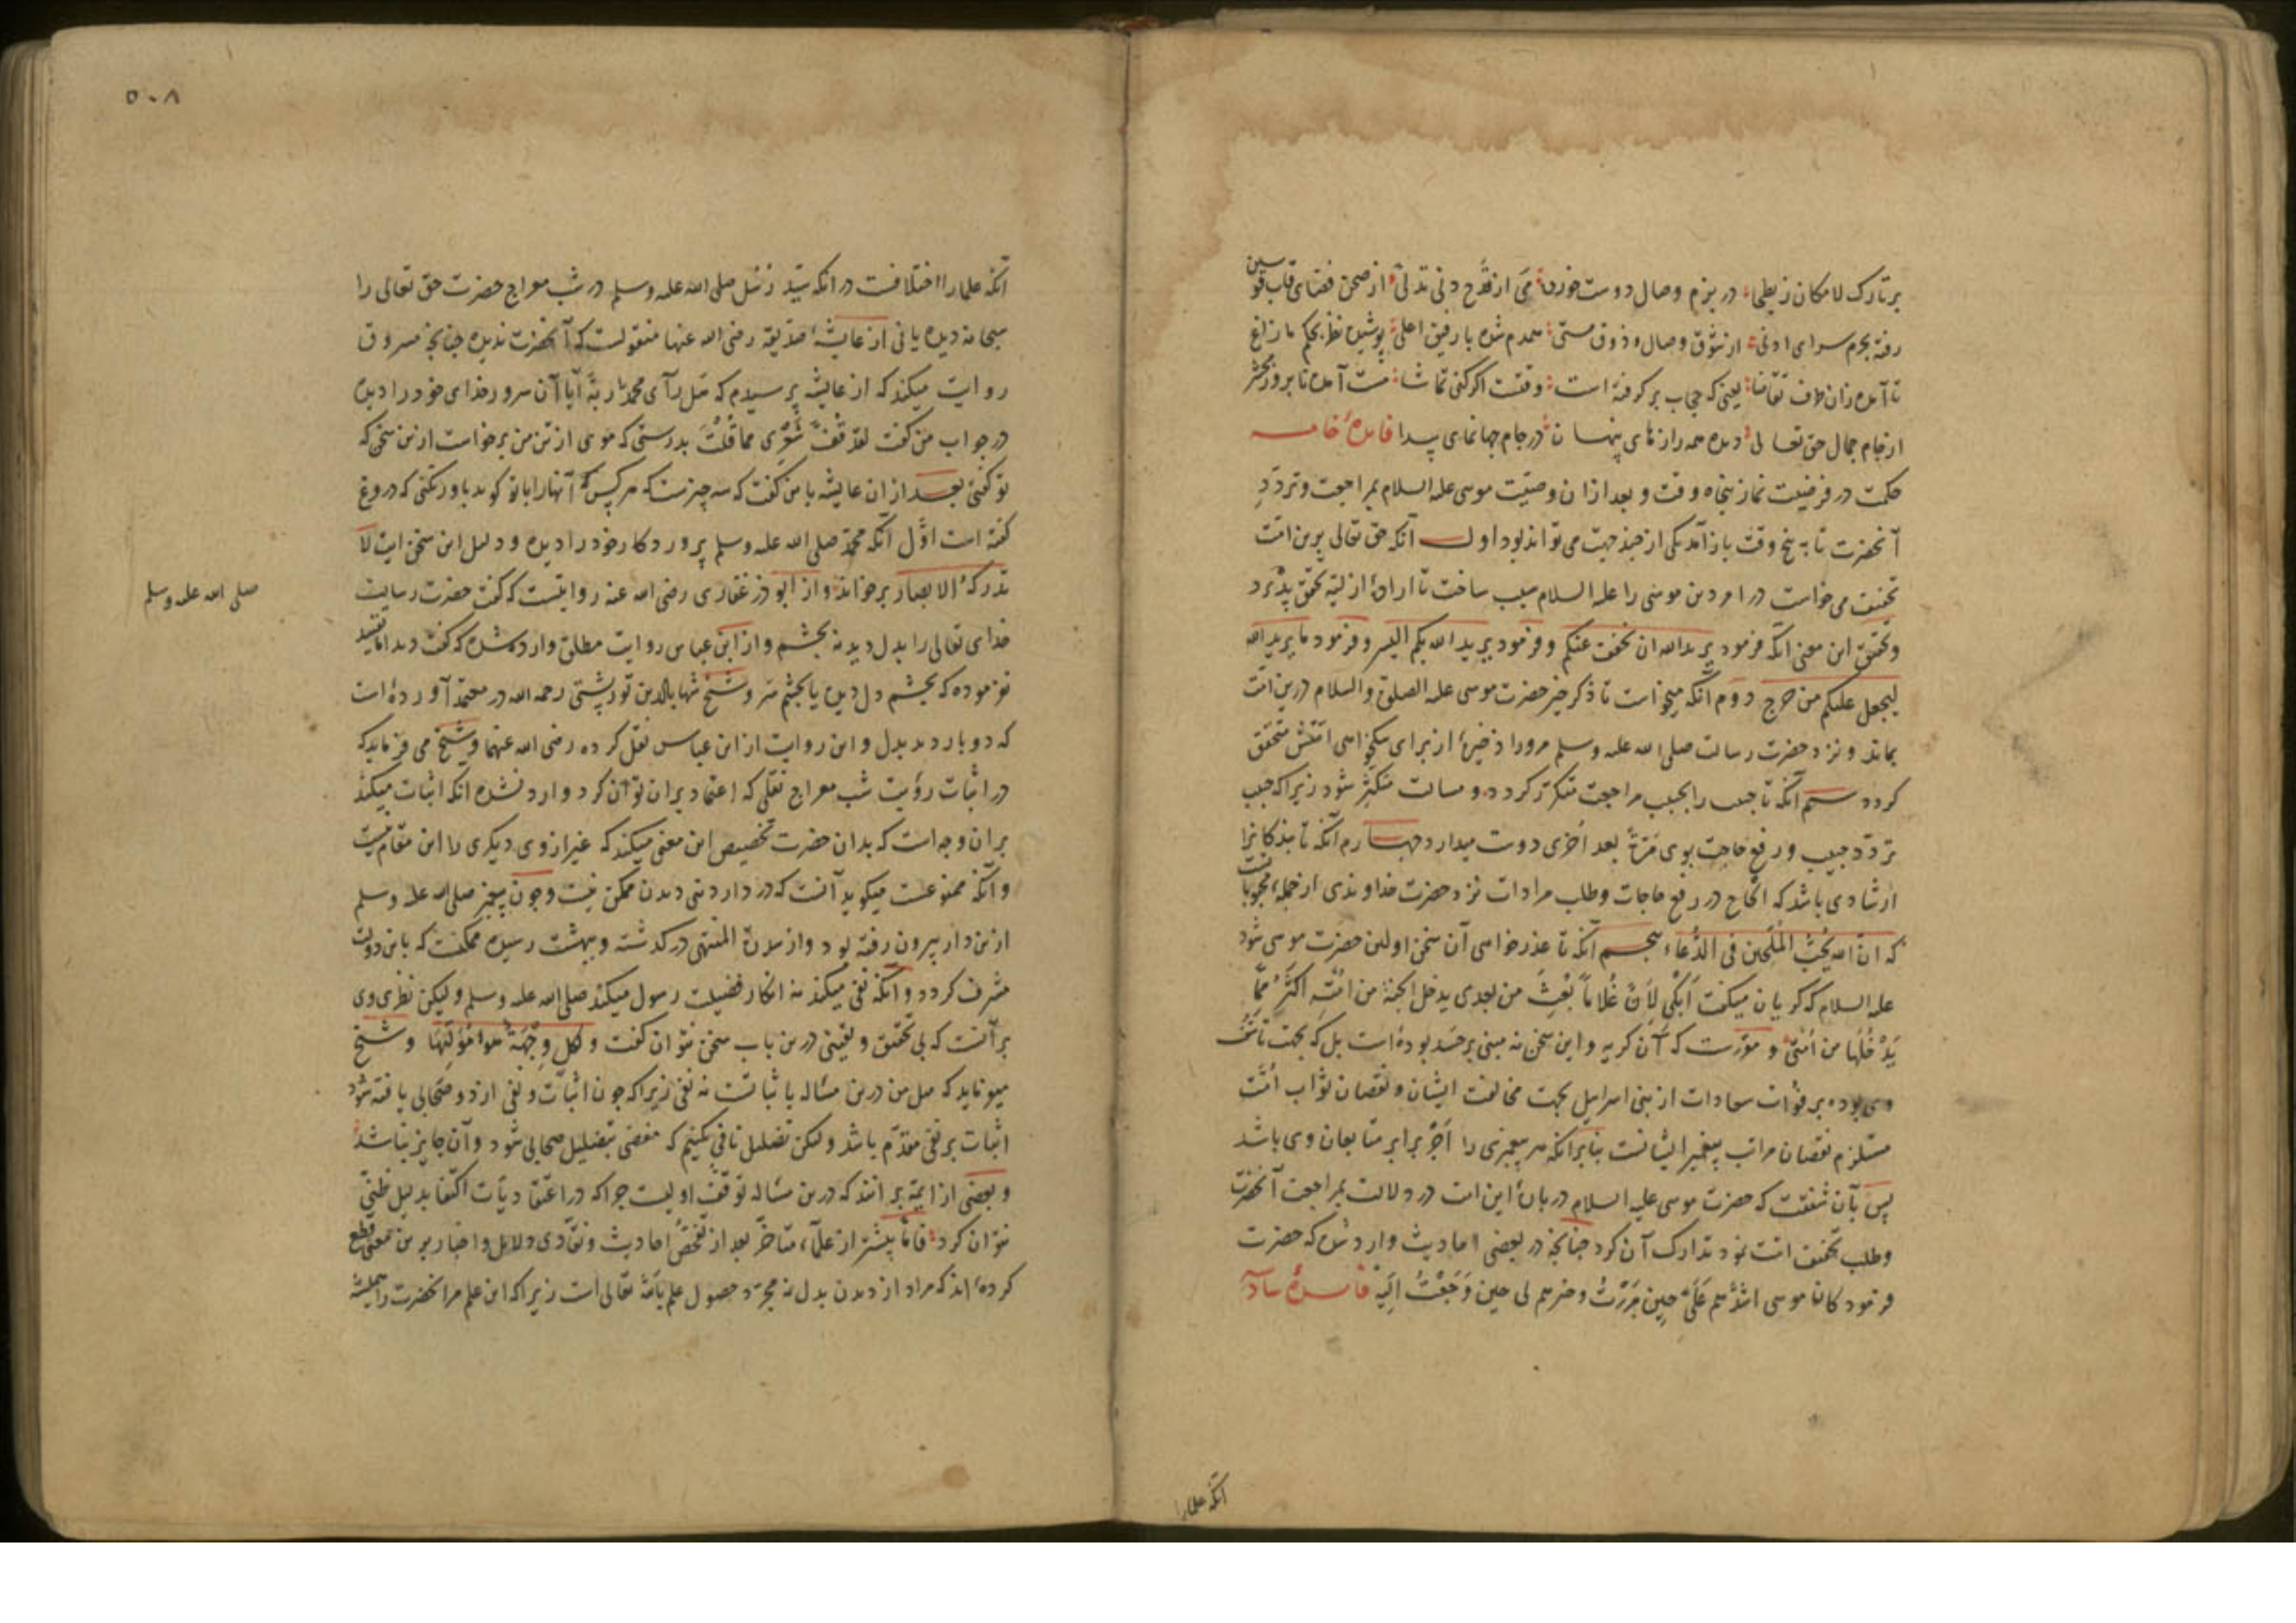 بر تارک لامکان ز بطحی در بزم وصال دوست خورده می از قدح دنی تدلی از صحن فضای قاب قوسین
رفته بحرم سرای ادنی از شوق وصال و ذوق مستی همدم شده با رفیق اعلی پوشیده نظر بحکم مازاغ
تا آمده زان طرف تقاضا یعنی که حجاب بر گرفته است وقتست اگر کنی تماشا مست آمده تا بروز محشر
از جام جمال حق تعالی دیده همه رازهای پنهان در جام جهانمای پیدا فایدهٔ خامسه
حکمت در فرضیت نماز پنجاه وقت و بعد ازان وصیت موسی علیه السلام بمراجعت و تردد
آنحضرت تا به پنج وقت باز آمد یکی از چند جهت می تواند بود اول آنکه حق تعالی برین امت
تخفیف می خواست در امر دین موسی را علیه السلام سبب ساخت تا ارادهٔ ازلیه تحقق پذیرد
و تحقیق این معنی آنکه فرمود یرید الله ان یخفف عنکم و فرمود یرید الله بکم الیسر و فرمود ما یرید الله
لیجعل علیکم من حرج دوم آنکه میخواست تا ذکر خیر حضرت موسی علیه الصلوة والسلام درین امت
بماند و نزد حضرت رسالت صلی الله علیه وسلم مرورا ذخیرهٔ از برای نیکخواهی امتش متحقق
گردد سیم آنکه تا حبیب را بحبیب مراجعت متکرر گردد و مسالت متکثر شود زیرا که حبیب
تردد حبیب و رفع حاجت بوی مرة بعد اخری دوست میدارد چهارم آنکه تا بندگانرا
ارشادی باشد که الحاح در رفع حاجات و طلب مرادات نزد حضرت خداوندی از جملهٔ محبوباتست
که ان الله یحب الملحین فی الدعاء پنجم آنکه تا عذرخواهی آن سخن اولین حضرت موسی شود
علیه السلام که گریان میگفت ابکی لان غلاما بعث من بعدی یدخل الجنة من امته اکثر مما
یدخلها من امتی و مقررست که آن گریه و این سخن نه مبنی بر حسد بوده است بل که بجهت تاسف
وی بوده بر فوات سعادات از بنی اسرائیل بجهت مخالفت ایشان و نقصان ثواب امت
مستلزم نقصان مراتب پیغمبر ایشانست بنابر آنکه هر پیغمبری را اجر برابر متابعان وی باشد
پس بآن شفقت که حضرت موسی علیه السلام دربارهٔ این امت در دلالت بمراجعت آنحضرت
و طلب تخفیف امت نمود تدارک آن کرد چنانچه در بعضی احادیث وارد شده که حضرت
فرمود کان موسی اشدهم علی حین مررت و خیرهم لی حین رجعت الیه فایدهٔ سادسه
آنکه علما را
۵۰۸
آنکه علما را اختلافست در آنکه سید رسل صلی الله علیه وسلم در شب معراج حضرت حق تعالی را
سبحانه دیده یا نی از عایشهٔ صدیقه رضی الله عنها منقولست که آنحضرت ندیده چنانچه مسروق
روایت میکند که از عایشه پرسیدم که هل رآی محمد ربه آیا آن سرور خدای خود را دیده
در جواب من گفت لقد قف شعری مما قلت بدرستی که موی از تن من برخاست ازین سخن که
تو گفتی بعد ازان عایشه با من گفت که سه چیزست که هر کس که آنها را با تو گوید باور نکنی که دروغ
گفته است اول آنکه محمد صلی الله علیه وسلم پروردگار خود را دیده و دلیل این سخن ایت لا
تدرکه الابصار برخواند و از ابوذر غفاری رضی الله عنه روایتست که گفت حضرت رسالت
صلی الله علیه وسلم
خدای تعالی را بدل دید نه بچشم و از ابن عباس روایت مطلق وارد شده که گفت دید اما تقیید
نفرموده که بچشم دل دیده یا بچشم سر و شیخ شهاب الدین تورپشتی رحمه الله در معتمد آورده است
که دو بار دید بدل و این روایت از ابن عباس نقل کرده رضی الله عنهما و شیخ می فرماید که
در اثبات رؤیت شب معراج نقلی که اعتماد بران توان کرد وارد نشده آنکه اثبات میکند
بران وجه است که بدان حضرت تخصیص این معنی میکند که غیر از وی دیگری را این مقام نیست
و آنکه ممنوعست میگوید آنست که در دار دنیی دیدن ممکن نیست و چون پیغمبر صلی الله علیه وسلم
ازین دار بیرون رفته بود و از سدرة المنتهی درگذشته و ببهشت رسیده ممکنست که باین دولت
مشرف گردد و آنکه نفی میکند نه انکار فضیلت رسول میکند صلی الله علیه وسلم و لیکن نظر وی
بر آنست که بی تحقیق و یقینی درین باب سخن نتوان گفت و لکل وجهة هو مولیها و شیخ
میفرماید که میل من درین مساله باثباتست نه نفی زیرا که چون اثبات و نفی از دو صحابی یافته شود
اثبات بر نفی مقدم باشد و لیکن تضلیل نافی نکنیم که مفضی بتضلیل صحابی شود و آن جایز نباشد
و بعضی از ایمه بر آنند که درین مساله توقف اولیست چرا که در اعتقادیات اکتفا بدلیل ظنی
نتوان کرد فاما بیشتر از علماء متاخر بعد از تفحص احادیث و نقادی دلایل و اخبار برین معنی قطع
کرده اند که مراد از دیدن بدل نه مجرد حصول علم بالله تعالی است زیرا که این علم مر آنحضرت را همیشه